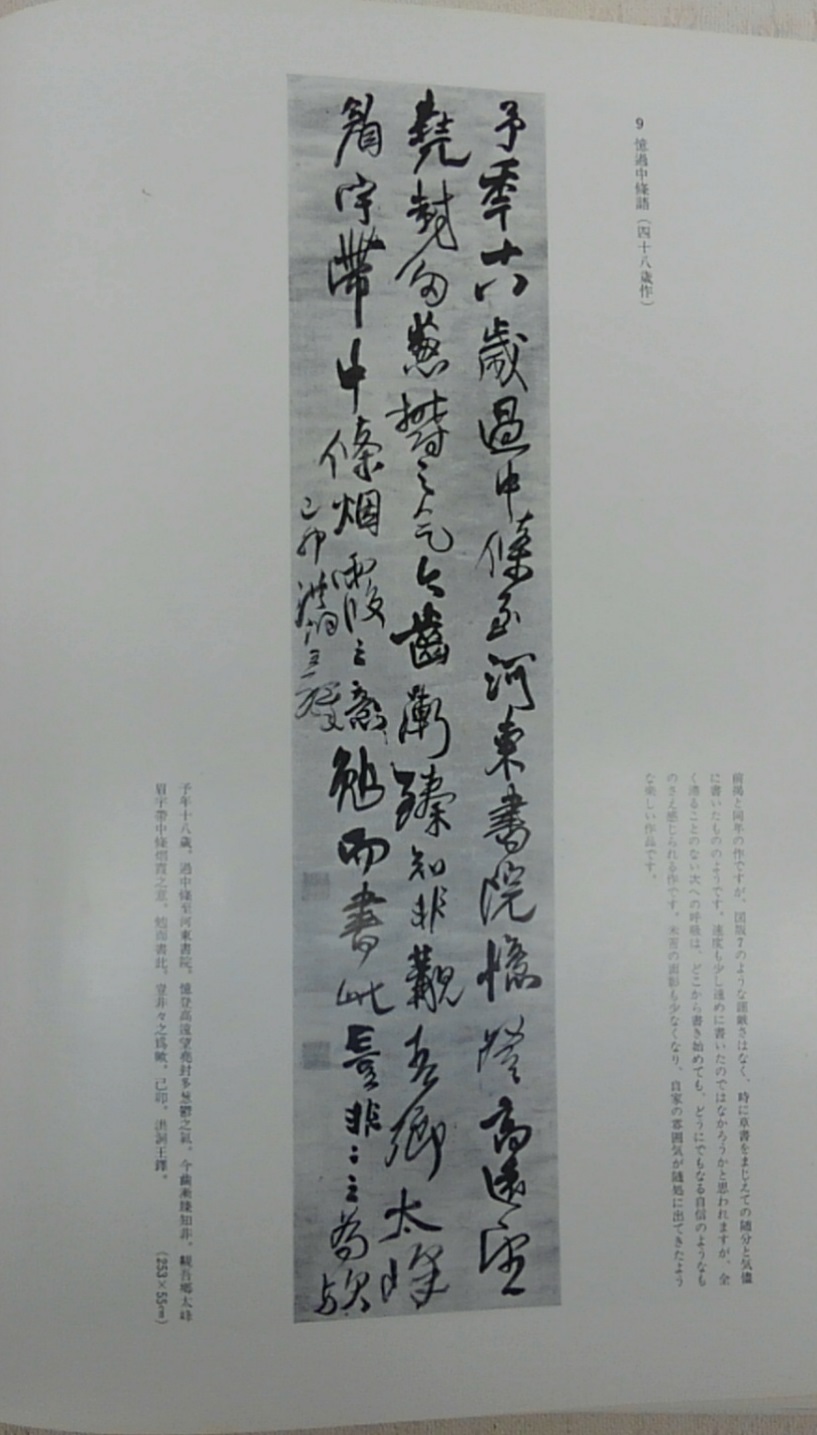 9 憶過中條語（四十八歳作）
前掲と同年の作ですが、図版7のような謹厳さはなく、時に草書をまじえての随分と気儘
に書いたもののようです。速度も少し速めに書いたのではなかろうかと思われますが、全
く滞ることのない次への呼吸は、どこから書き始めても、どうにでもなる自信のようなも
のさえ感じられる作です。米芾の面影も少なくなり、自家の雰囲気が随処に出てきたよう
な楽しい作品です。
予年十八歲過中條至河東書院憶登高遠望
堯封多葱鬱之气今齒漸臻知非觀吾鄉太峰
眉宇帶中條烟霞之意勉而書此豈非〻之為歟
己卯洪洞王鐸
予年十八歲。過中條至河東書院。憶登高遠望堯封多葱鬱之氣。今齒漸臻知非。觀吾鄉太峰
眉宇帶中條烟霞之意。勉而書此。豈非々之爲歟。己卯。洪洞王鐸。（253×55cm）